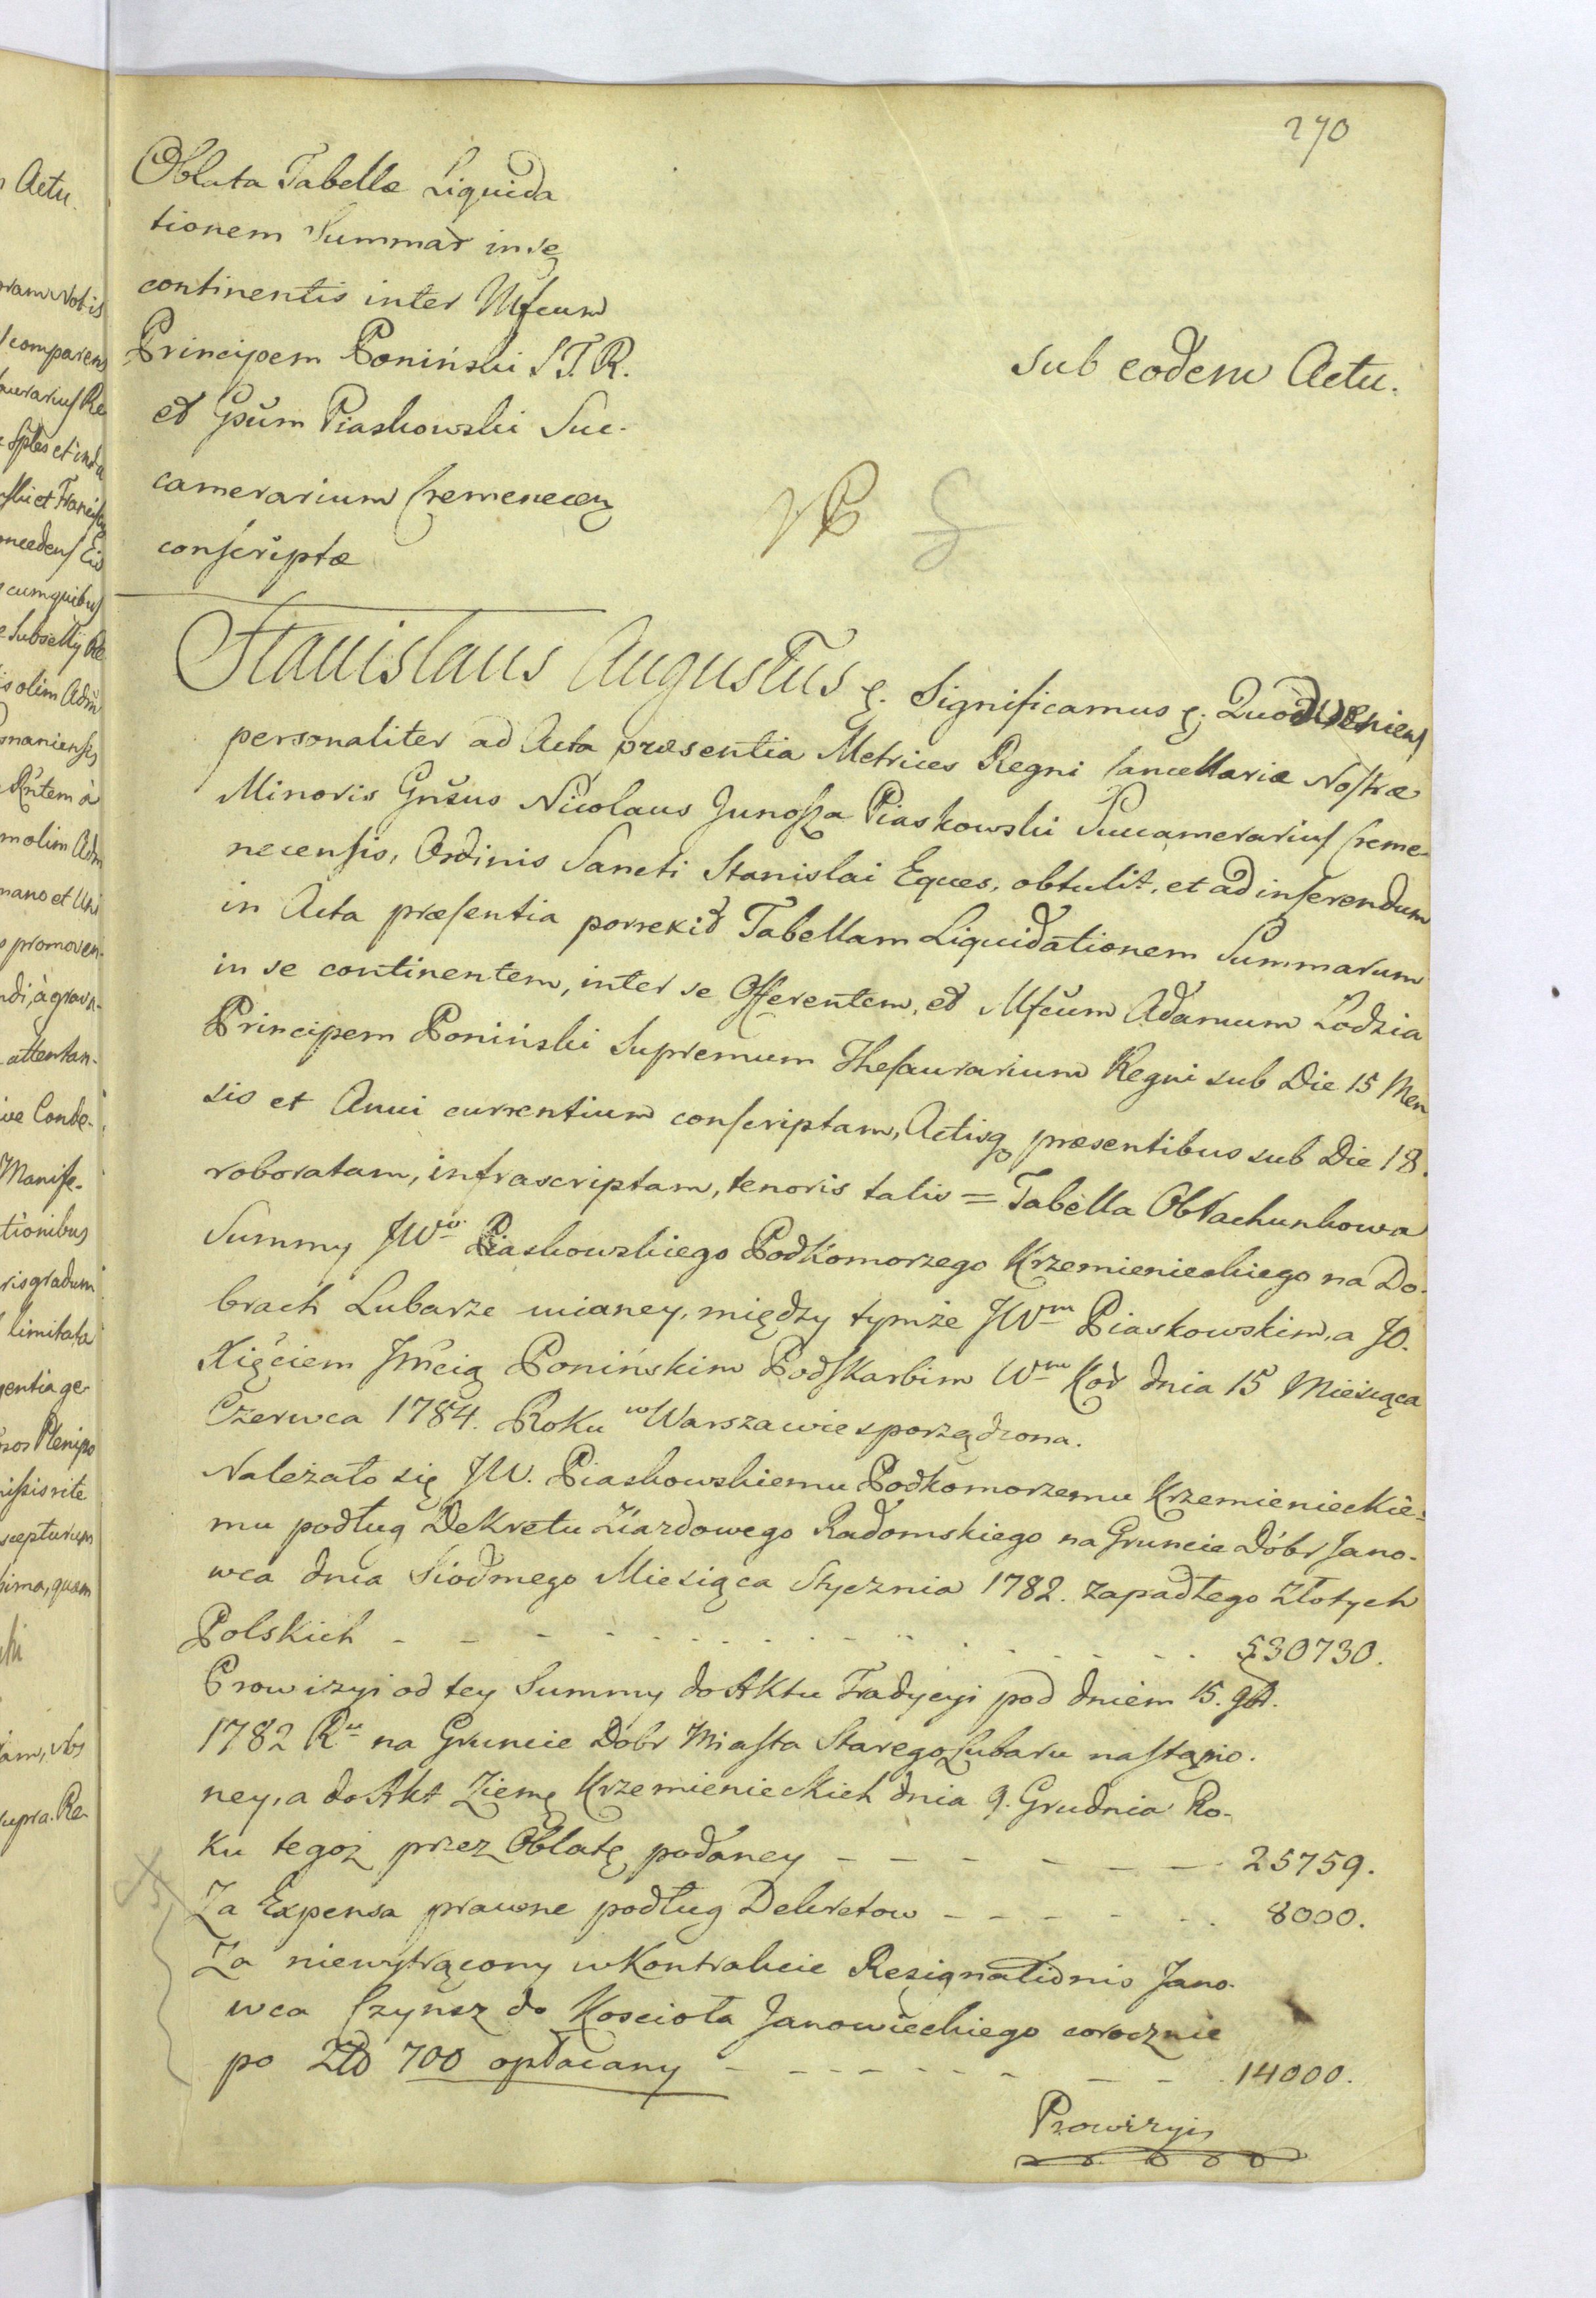 270
Oblata Tabellæ Liquida
tionem Summar in se
continentis inter Mfcum
Principem Poniński S.T.R.
et Gñum Piaskowski Suc-
camerarium Cremenecen
conscriptæ
sub eodem Actu.
Stanislaus Augustus ę. Significamus ę. Quod veniens
personaliter ad Acta præsentia Metrices Regni Cancellariæ Nostræ
Minoris Gñsus Nicolaus Junosza Piaskowski Succamerarius Creme-
necensis, Ordinis Sancti Stanislai Eques, obtulit, et ad inserendum
in Acta præsentia porrexit Tabellam Liquidationem Summarum
in se continentem, inter se Offerentem, et Mfcum Adamum Łodzia
Principem Poniński Supremum Thesaurarium Regni sub Die 15 Men
sis et Anni currentium conscriptam, Actisq præsentibus sub Die 18.
roboratam, infrascriptam, tenoris talis = Tabella Obrachunkowa
Summy JWo Piaskowskiego Podkomorzego Krzemienieckiego na Do-
brach Lubarze mianey, między tymże JWm Piaskowskim, a JO.
Xięciem Jmcią Ponińskim Podskarbim Wm Kor dnia 15 Miesiąca
Czerwca 1784. Roku w Warszawie sporządzona.
Należało się JW. Piaskowskiemu Podkomorzemu Krzemienieckie-
mu podług Dekretu Ziazdowego Radomskiego na Gruncie Dóbr Jano-
wca dnia Siodmego Miesiąca Stycznia 1782. zapadłego Złotych
Polskich - - - - - - - - - - - - 530730.
Prowizyi od tey Summy do Aktu Tradycyi pod dniem 15. 9br.
1782 Ru na Gruncie Dóbr Miasta Starego Lubaru nastąpio-
ney, a do Akt Ziemę Krzemienieckich dnia 9. Grudnia Ro-
ku tegoż przez Oblatę podaney - - - - - - - 25759.
Za Expensa prawne podług Dekretow - - - - - - 8000.
Za niewytrącony w Kontrakcie Resignationis Jano-
wca Czynsz do Koscioła Janowieckiego corocznie
po Złt 700 opłacany - - - - - - - - - 14000.
Prowizyi